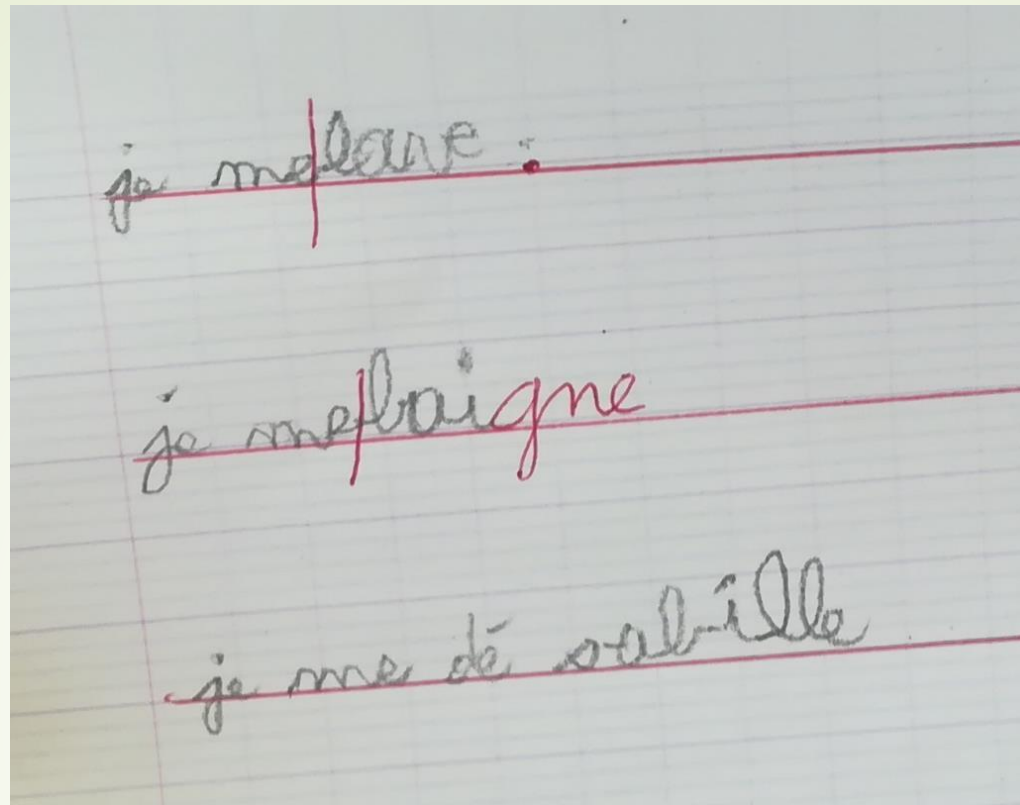 je me lave.
je me baigne
je me dé sabille